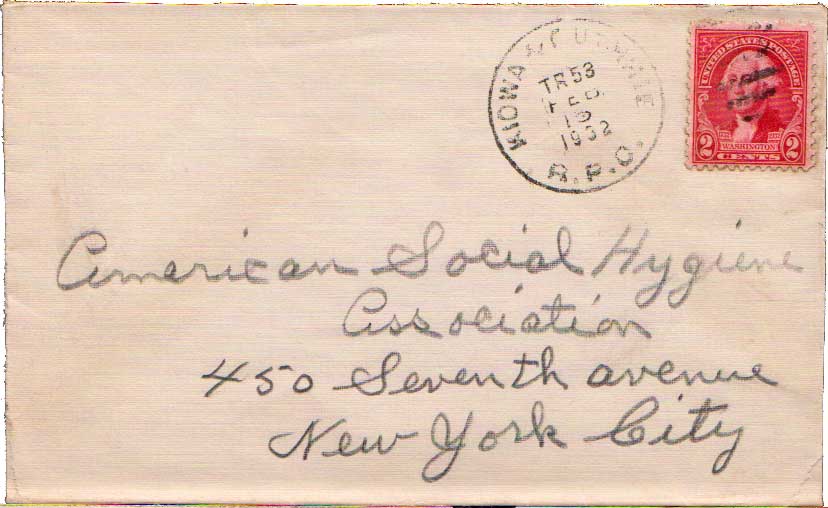 KIOWA & GUTHRIE
TR 53
FEB
1932
R.P.O.
UNITED STATES POSTAGE
WASHINGTON
2 CENTS 2
American Social Hygiene
Association
450 Seventh avenue
New York City